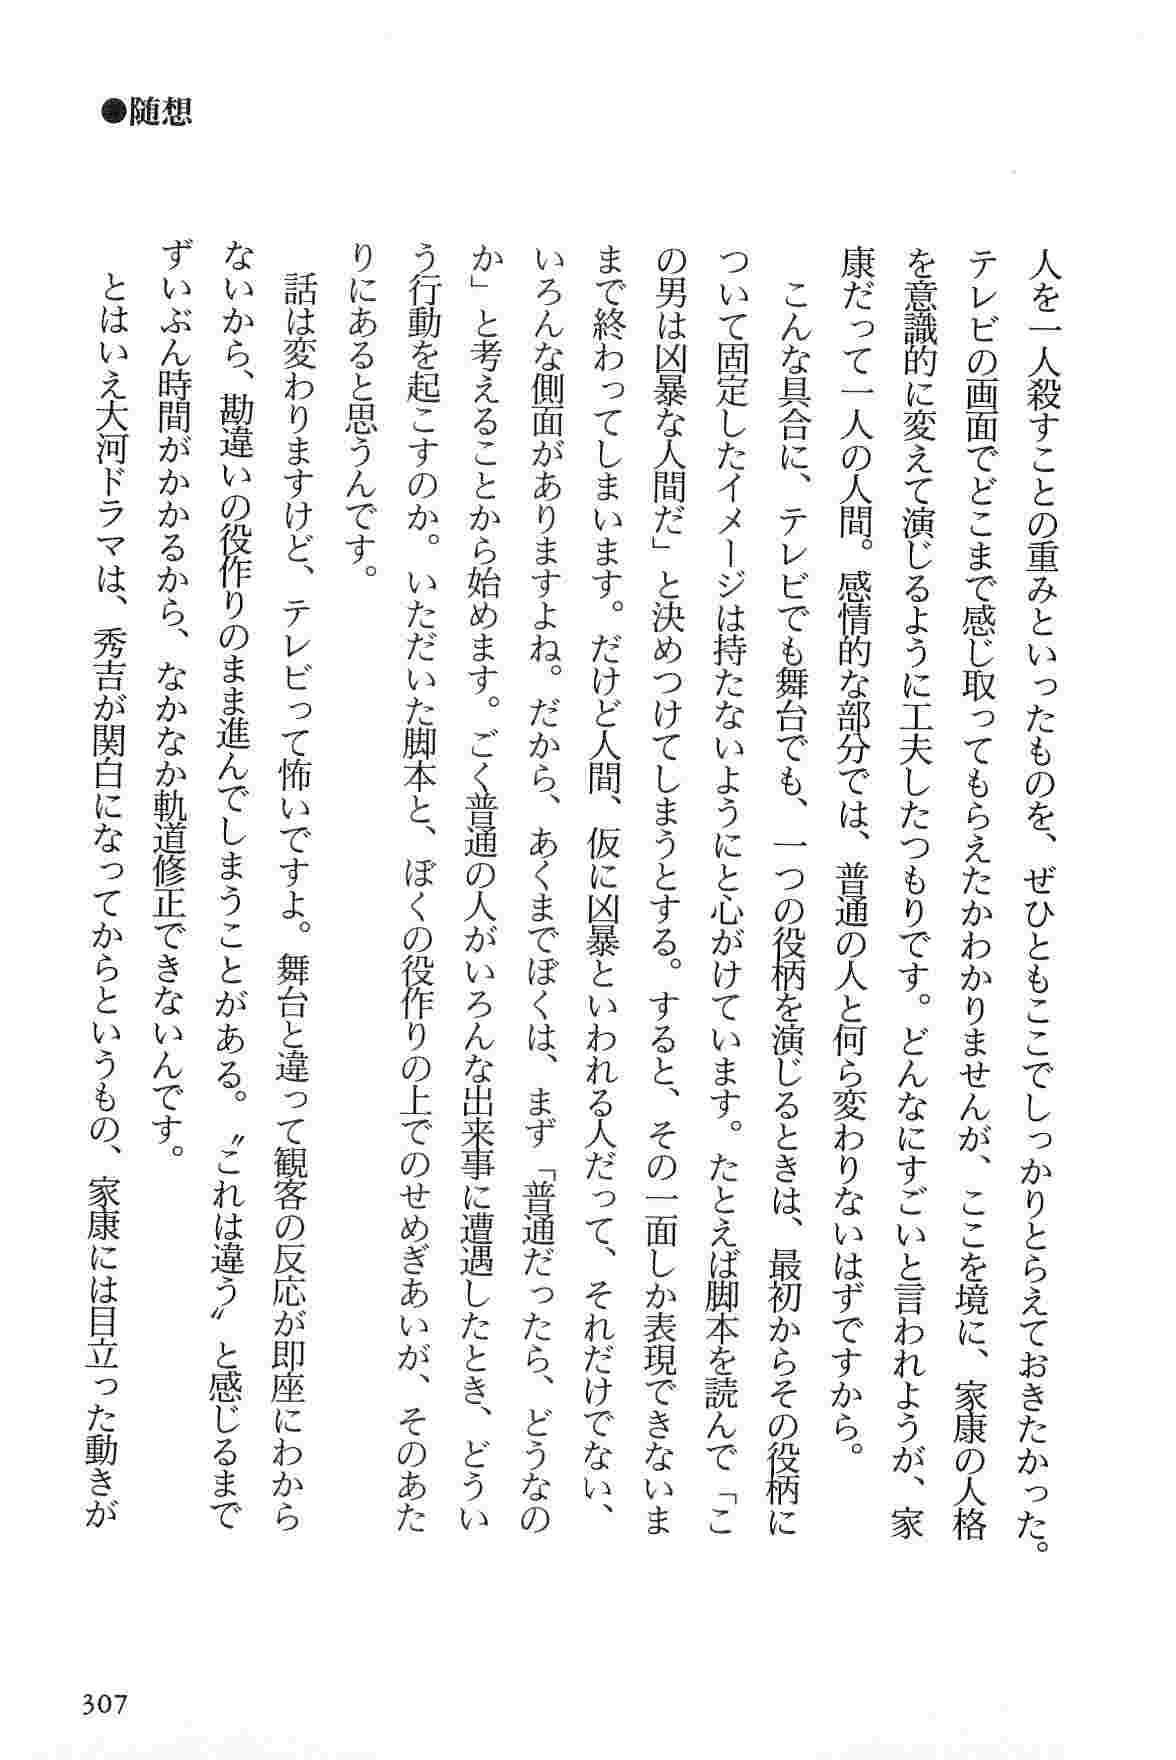 ●随想
人を一人殺すことの重みといったものを、ぜひともここでしっかりとらえておきたかった。
テレビの画面でどこまで感じ取ってもらえたかわかりませんが、ここを境に、家康の人格
を意識的に変えて演じるように工夫したつもりです。どんなにすごいと言われようが、家
康だって一人の人間。感情的な部分では、普通の人と何ら変わりないはずですから。
こんな具合に、テレビでも舞台でも、一つの役柄を演じるときは、最初からその役柄に
ついて固定したイメージは持たないようにと心がけています。たとえば脚本を読んで「こ
の男は凶暴な人間だ」と決めつけてしまうとする。すると、その一面しか表現できないま
まで終わってしまいます。だけど人間、仮に凶暴といわれる人だって、それだけでない、
いろんな側面がありますよね。だから、あくまでぼくは、まず「普通だったら、どうなの
か」と考えることから始めます。ごく普通の人がいろんな出来事に遭遇したとき、どうい
う行動を起こすのか。いただいた脚本と、ぼくの役作りの上でのせめぎあいが、そのあた
りにあると思うんです。
話は変わりますけど、テレビって怖いですよ。舞台と違って観客の反応が即座にわから
ないから、勘違いの役作りのまま進んでしまうことがある。〝これは違う〟と感じるまで
ずいぶん時間がかかるから、なかなか軌道修正できないんです。
とはいえ大河ドラマは、秀吉が関白になってからというもの、家康には目立った動きが
307